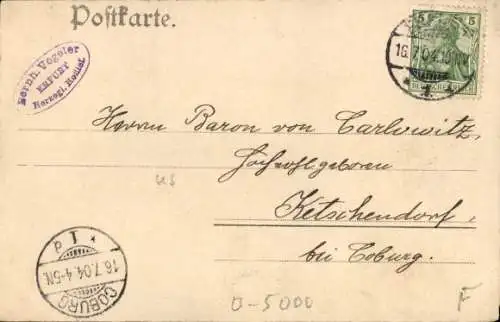 Postkarte.
5 5
16.7.04.
DEUTSCHES REICH
Bernh. Vogeler
ERFURT
Herzogl. Hoflief.
Herrn Baron von Carlowitz,
Hochwohlgeboren
Ketschendorf,
bei Coburg.
16.7.04.4-5N.
COBURG
0-5000